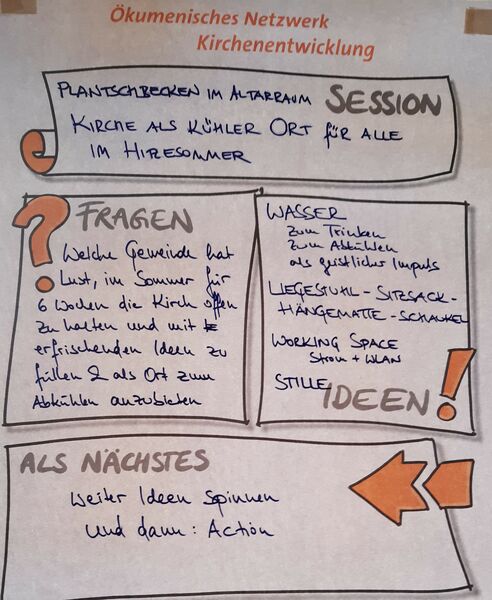 Ökumenisches Netzwerk
Kirchenentwicklung
PLANTSCHBECKEN IM ALTARRAUM SESSION
KIRCHE ALS KÜHLER ORT FÜR ALLE
IM HIRESOMMER
? FRAGEN
Welche Gemeinde hat
Lust, im Sommer für
6 Wochen die Kirch offen
zu halten und mit
erfrischenden Ideen zu
füllen & als Ort zum
Abkühlen anzubieten
WASSER
zum Trinken
zum Abkühlen
als geistlicher Impuls
LIEGESTUHL - SITZSACK -
HÄNGEMATTE - SCHAUKEL
WORKING SPACE
Strom + WLAN
STILLE
IDEEN !
ALS NÄCHSTES
Weiter Ideen spinnen
und dann : Action